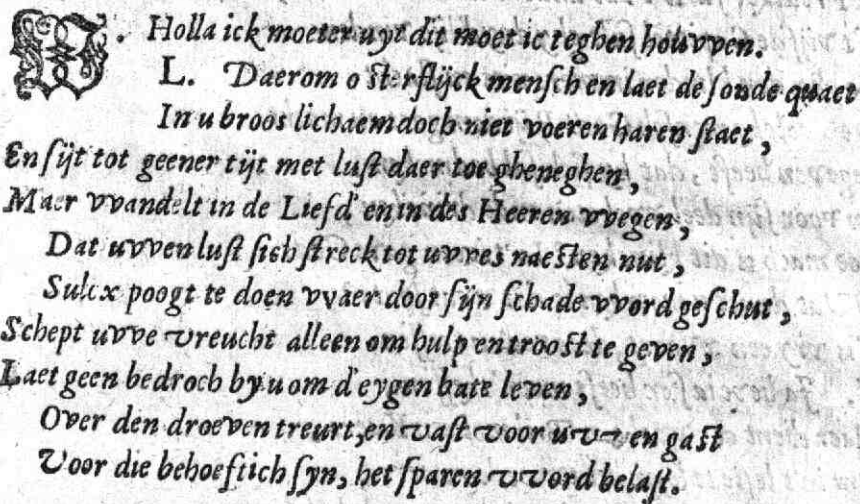 W. Holla ick moeter uyt dit moet ic teghen houvven.
L. Daerom o sterflijck mensch en laet de sonde quaet
In u broos lichaem doch niet voeren haren staet,
En sijt tot geener tijt met lust daer toe gheneghen,
Maer vvandelt in de Liefd' en in des Heeren vvegen,
Dat uvven lust sich streck tot uvves naesten nut,
Sulcx poogt te doen vvaer door sijn schade vvord geschut,
Schept uvve vreucht alleen om hulp en troost te geven,
Laet geen bedroch by u om d'eygen bate leven,
Over den droeven treurt, en vast voor uvven gast
Voor die behoeftich syn, het sparen vvord belast.